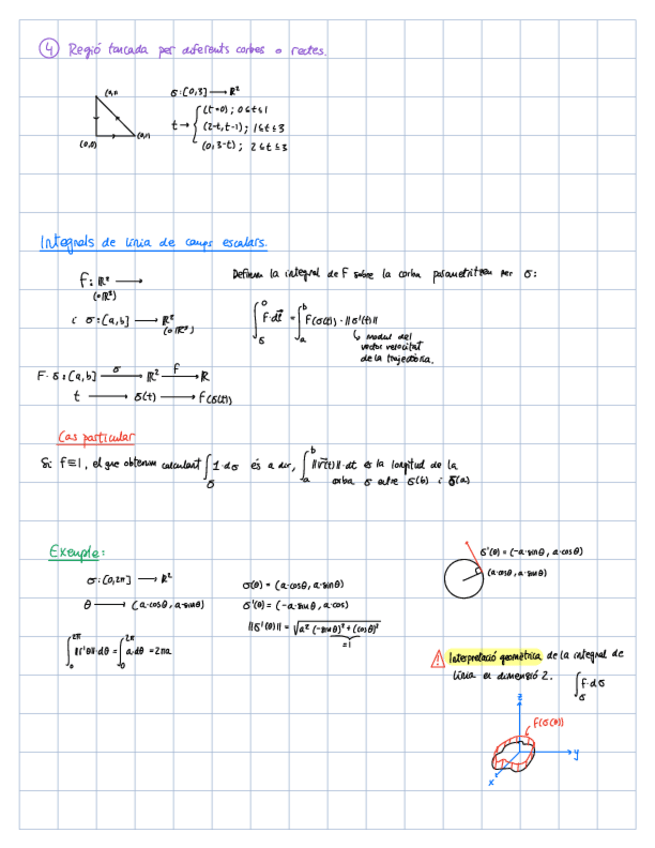 ④ Regió tancada per diferents corbes o rectes.
(0,1)
(0,0)
(1,0)
σ:[0,3] ⟶ R²
t → { (t,0) ; 0≤t≤1
(2-t, t-1) ; 1≤t≤3
(0, 3-t) ; 2≤t≤3
Integrals de línia de camps escalars.
f: R² ⟶
(o R³)
i σ:[a,b] ⟶ R²
(o R³)
Definim la integral de F sobre la corba parametritzem per σ:
∫_σ F·dl = ∫_a^b F(σ(t)) · ||σ'(t)||
↳ modul del
vector velocitat
de la trajectòria.
F·σ:[a,b] ⟶σ R² ⟶f R
t ⟶ σ(t) ⟶ F(σ(t))
Cas particular
Si f≡1, el que obtenim calculant ∫_σ 1·dσ és a dir, ∫_a^b ||v(t)||·dt es la longitud de la
corba σ entre σ(b) i σ(a)
Exemple:
σ:[0,2π] ⟶ R²
θ ⟶ (a·cosθ, a·sinθ)
∫_0^2π ||σ'(θ)||·dθ = ∫_0^2π a·dθ = 2πa
σ(θ) = (a·cosθ, a·sinθ)
σ'(θ) = (-a·sinθ, a·cos)
||σ'(θ)|| = √(a² (-sinθ)² + (cosθ)²)
=1
σ'(θ) = (-a·sinθ, a·cosθ)
(a·cosθ, a·sinθ)
⚠ Interpretació geomètrica de la integral de
línia en dimensió 2. ∫_σ f·dσ
z
f(σ(θ))
y
x